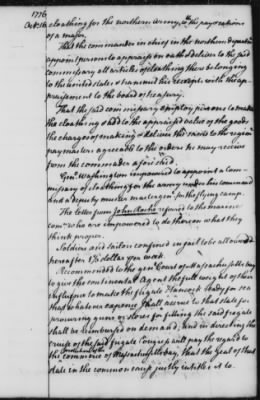 1776
Oct. 16 cloathing for the northern army, to the pay & rations
of a major.
That the commander in chief in the northern department
appoint persons to appraise on oath & deliver to the said
commissary all articles of cloathing there belonging
to the united states & transmit the receipts with the ap-
praisement to the board of treasury.
That the said commissary employ persons to make
the cloathing & add to the appraised value of the goods
the charges of making & deliver the
paymasters agreeable to the orders he may receive
from the commander aforesaid.
Genl. Washington impowered to appoint a com-
missary of cloathing for the army under his command
and a deputy muster master genl. for the flying camp.
The letter from John referred to the marine
comee. who are impowered to do thereon what they
think proper.
Soldiers and sailors confined in gaol to be allowed
hereafter 1⅓ dollar per week.
Recommended to the genl. Court of Massachusetts bay
to give the continental agent the full weight of their
influence to make the frigate Hancock ready for sea
that whatever expence shall accrue to that state for
procuring guns or stores for fitting the said frigate
shall be reimbursed on demand; and in directing the
cruise of the said frigate Congress will pay the regard to
the commerce of Massachusetts bay, that the zeal of that
state in the common cause justly intitles it to.